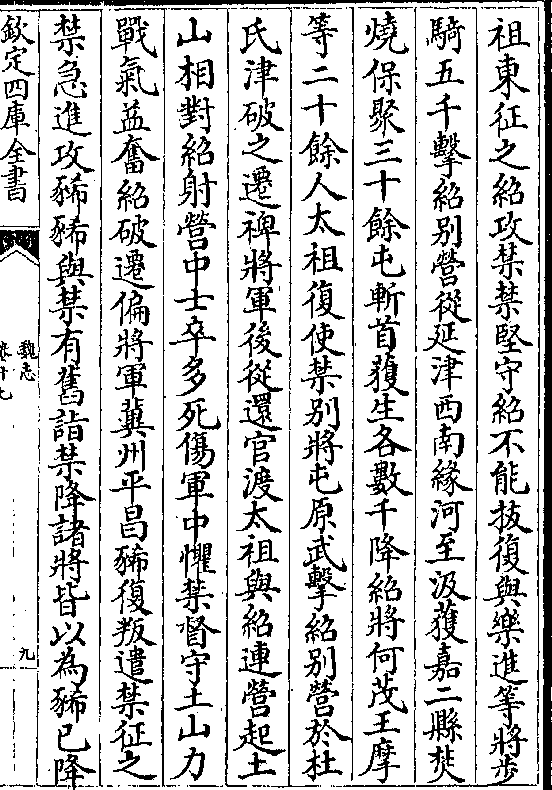 祖東征之紹攻禁禁堅守紹不能拔復與樂進等將步
騎五千擊紹别營從延津西南緣河至汲獲嘉二縣焚
燒保聚三十餘屯斬首獲生各數千降紹將何茂王摩
等二十餘人太祖復使禁别將屯原武擊紹别營於杜
氏津破之遷裨將軍後從還官渡太祖與紹連營起土
山相對紹射營中士卒多死傷軍中懼禁督守土山力
戰氣益奮紹破遷偏將軍冀州平昌豨復叛遣禁征之
禁急進攻豨豨與禁有舊詣禁降諸將皆以為豨已降
欽定四庫全書
魏志
卷十七
九